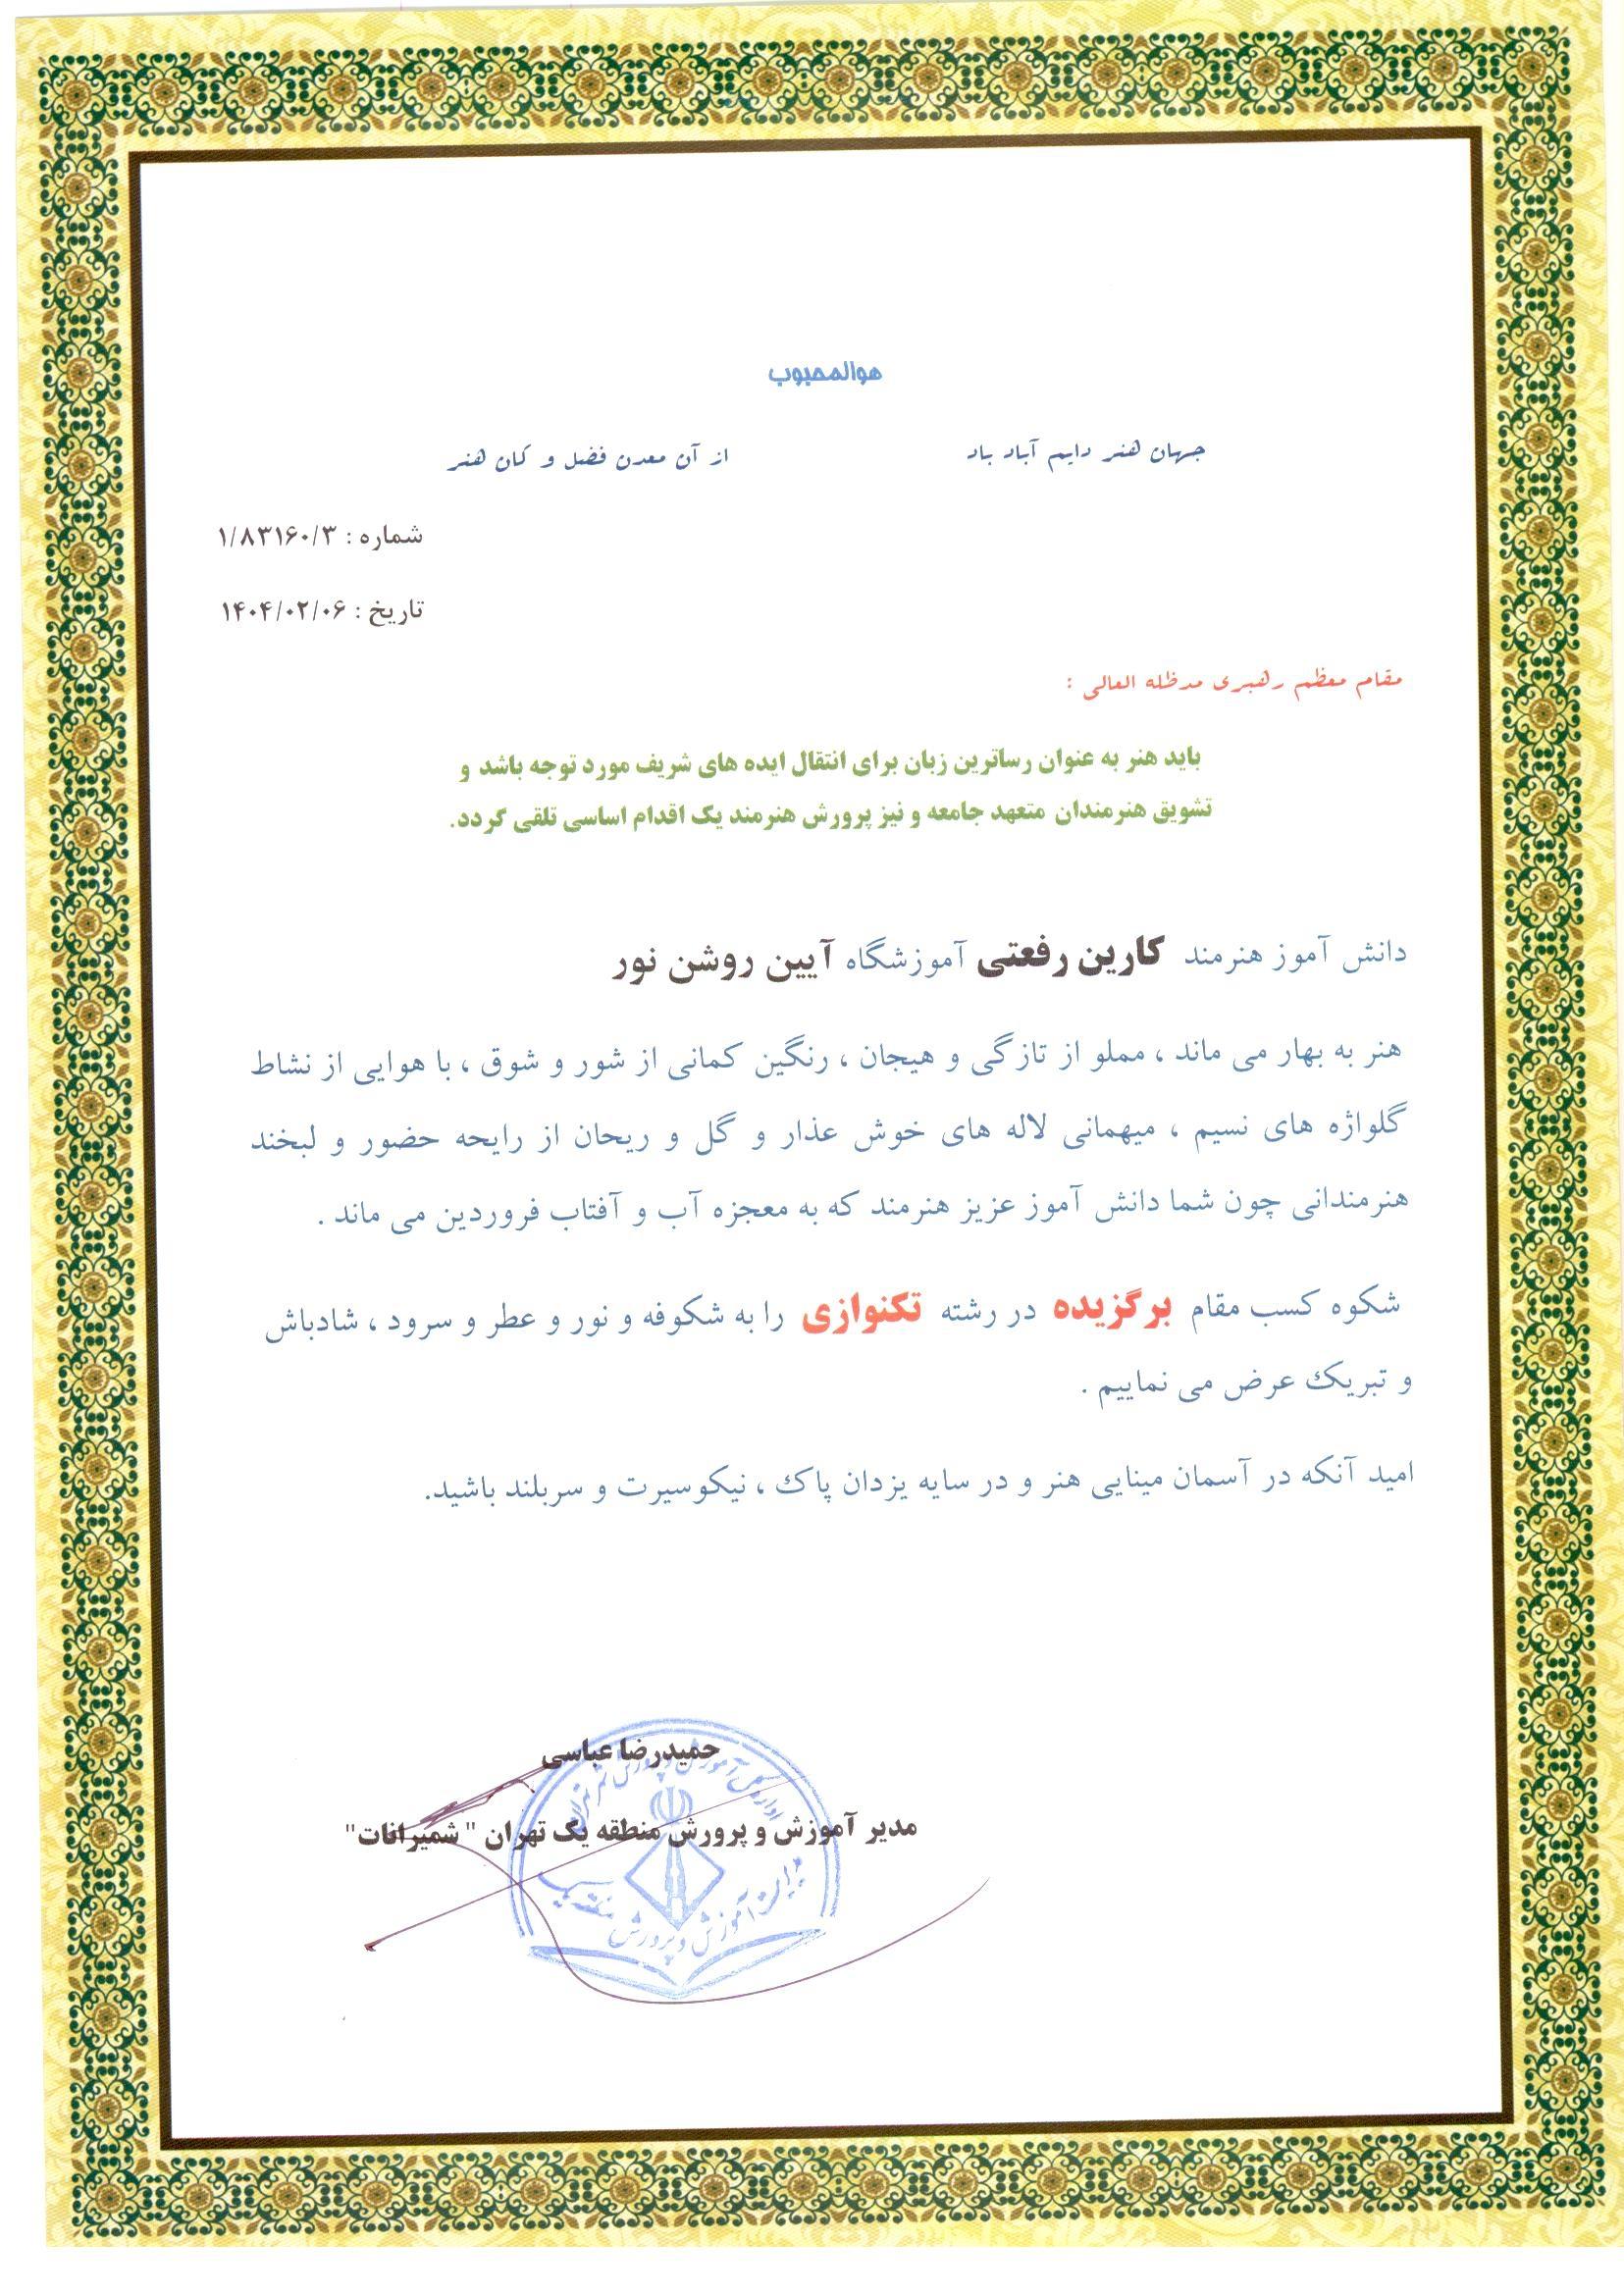 هوالمحبوب
جهان هنر دایم آباد باد از آن معدن فضل و کان هنر
شماره : ۱/۸۳۱۶۰/۳
تاریخ : ۱۴۰۴/۰۲/۰۶
مقام معظم رهبری مدظله العالی :
باید هنر به عنوان رساترین زبان برای انتقال ایده های شریف مورد توجه باشد و
تشویق هنرمندان متعهد جامعه و نیز پرورش هنرمند یک اقدام اساسی تلقی گردد.
دانش آموز هنرمند کارین رفعتی آموزشگاه آیین روشن نور
هنر به بهار می ماند ، مملو از تازگی و هیجان ، رنگین کمانی از شور و شوق ، با هوایی از نشاط
گلواژه های نسیم ، میهمانی لاله های خوش عذار و گل و ریحان از رایحه حضور و لبخند
هنرمندانی چون شما دانش آموز عزیز هنرمند که به معجزه آب و آفتاب فروردین می ماند .
شکوه کسب مقام برگزیده در رشته تکنوازی را به شکوفه و نور و عطر و سرود ، شادباش
و تبریک عرض می نماییم .
امید آنکه در آسمان مینایی هنر و در سایه یزدان پاک ، نیکوسیرت و سربلند باشید.
حمیدرضا عباسی
مدیر آموزش و پرورش منطقه یک تهران " شمیرانات"
آموزش و پرورش